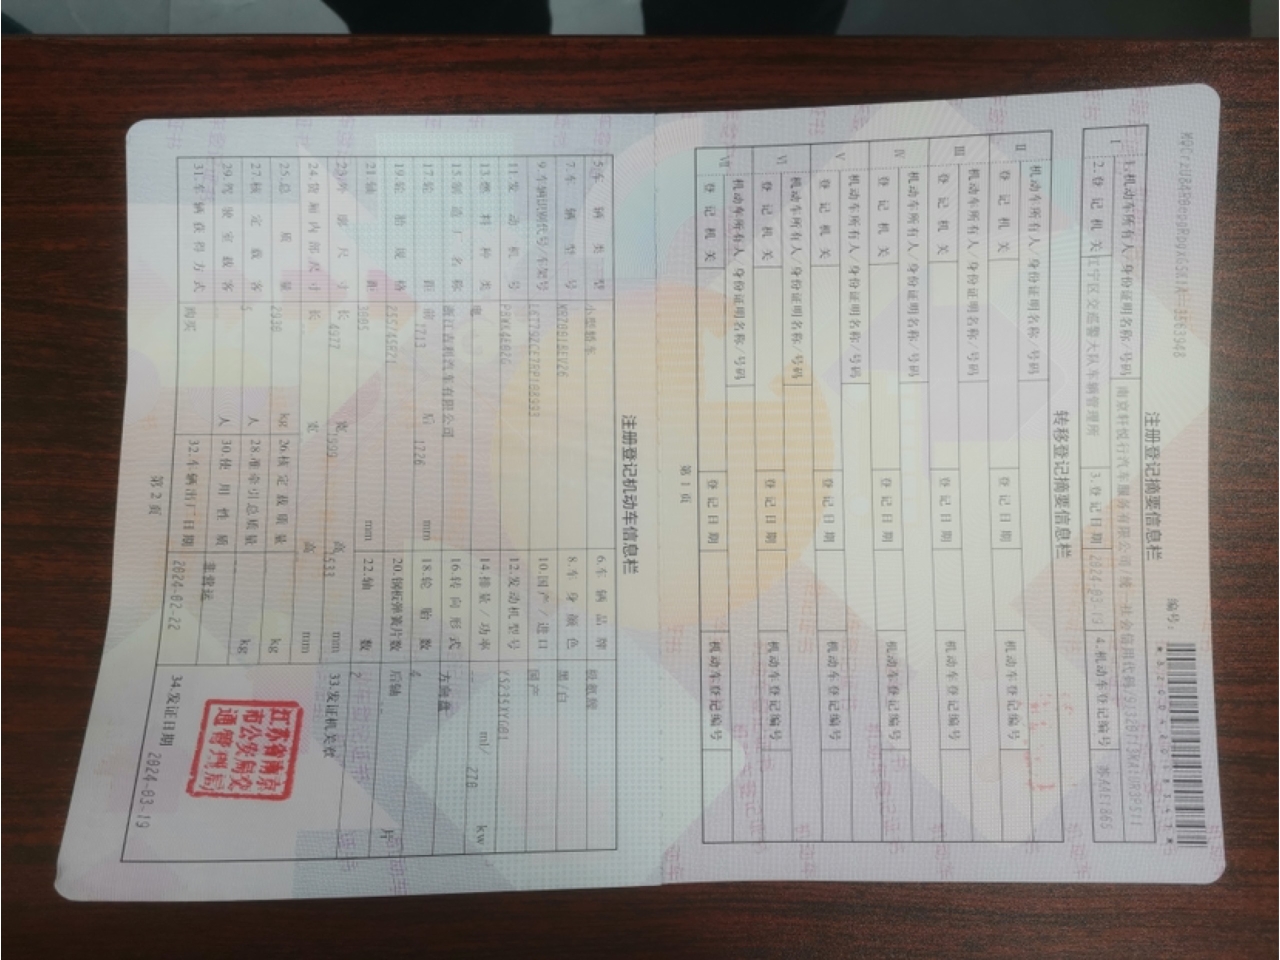 注册登记摘要信息栏
编号:
Ⅰ
1.机动车所有人/身份证明名称/号码
南京轩悦行汽车服务有限公司/统一社会信用代码/
2.登记机关
江宁区交巡警大队车辆管理所
3.登记日期
4.机动车登记编号
转移登记摘要信息栏
Ⅱ
机动车所有人/身份证明名称/号码
登记机关
登记日期
机动车登记编号
Ⅲ
机动车所有人/身份证明名称/号码
登记机关
登记日期
机动车登记编号
Ⅳ
机动车所有人/身份证明名称/号码
登记机关
登记日期
机动车登记编号
Ⅴ
机动车所有人/身份证明名称/号码
登记机关
登记日期
机动车登记编号
Ⅵ
机动车所有人/身份证明名称/号码
登记机关
登记日期
机动车登记编号
Ⅶ
机动车所有人/身份证明名称/号码
登记机关
登记日期
机动车登记编号
第1页
注册登记机动车信息栏
5.车辆类型 小型轿车 6.车辆品牌 极氪牌
7.车辆型号 8.车身颜色 黑/白
9.车辆识别代号/车架号 10.国产/进口 国产
11.发动机号 12.发动机型号
13.燃料种类 电 14.排量/功率 -- ml/ 270 kw
15.制造厂名称 浙江吉利汽车有限公司 16.转向形式 方向盘
17.轮距 前 1713 后 1726 mm 18.轮胎数 4
19.轮胎规格 255/45R21 20.钢板弹簧片数 后轴 片
21.轴距 3005 mm 22.轴数 2
23.外廓尺寸 长 4977 宽 1999 高 1533 mm 33.发证机关章
24.货厢内部尺寸 长 宽 高 mm
25.总质量 2930 kg 26.核定载质量 kg
27.核定载客 5 人 28.准牵引总质量 kg
29.驾驶室载客 人 30.使用性质 非营运
31.车辆获得方式 购买 32.车辆出厂日期 2024-02-22 34.发证日期 2024-03-19
江苏省南京
市公安局交
通管理局
第2页